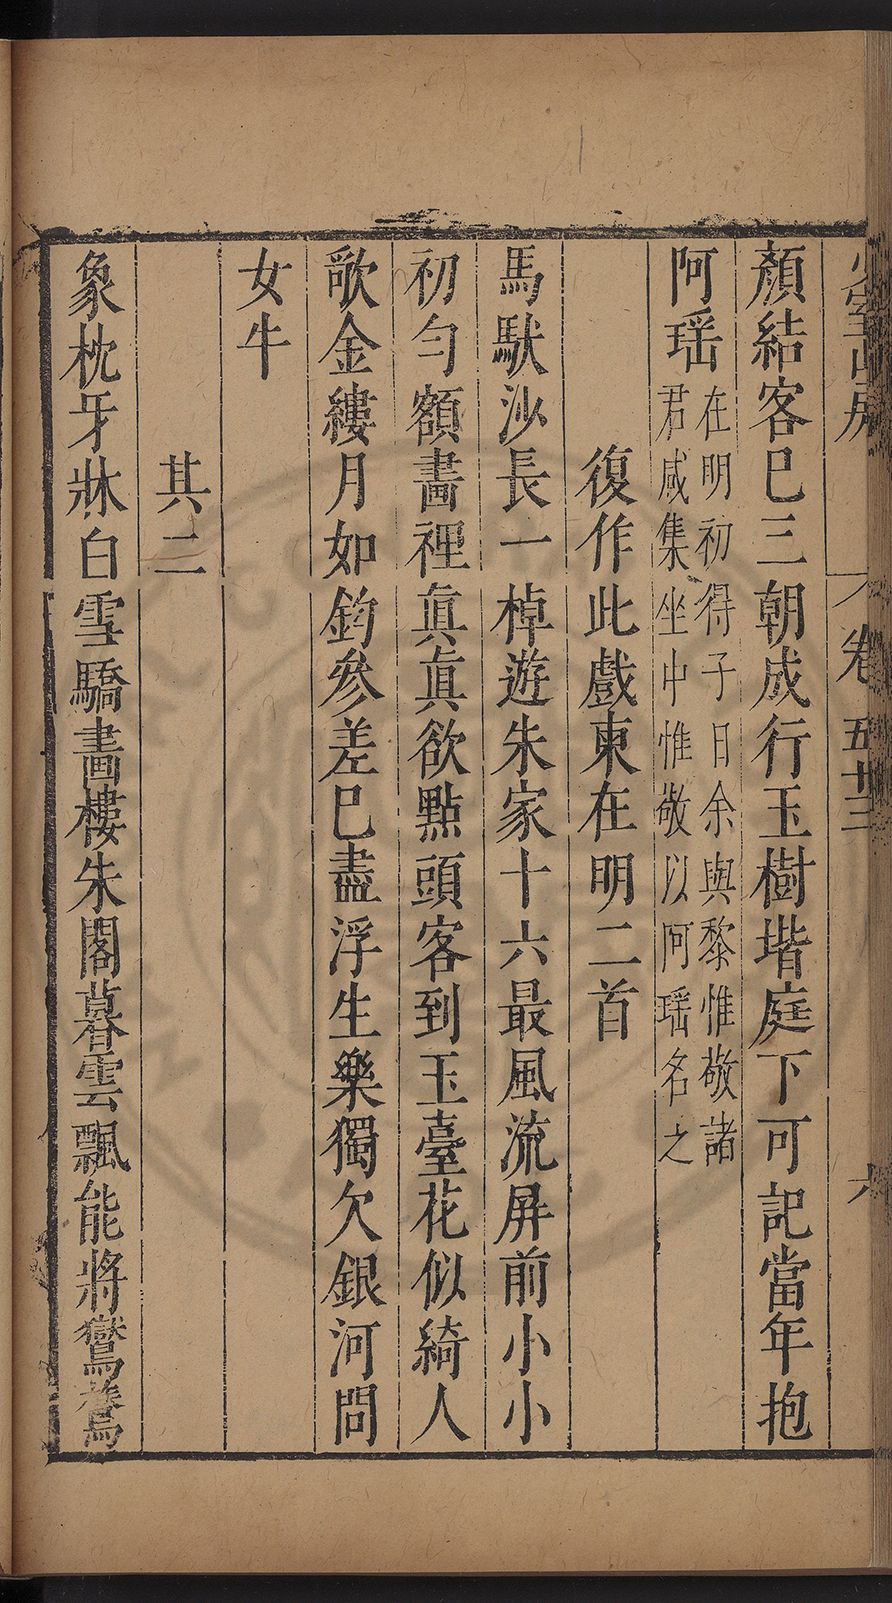 少室山房 卷五十三 六
顏結客已三朝成行玉樹堦庭下可記當年抱
阿瑶在明初得子日余與黎惟敬諸君咸集坐中惟敬以阿瑶名之
復作此戲柬在明二首
馬馱沙長一棹遊朱家十六最風流屏前小小
初勻額畵裡眞眞欲點頭客到玉臺花似綺人
歌金縷月如鈎參差已盡浮生樂獨欠銀河問
女牛
其二
象枕牙牀白雪驕畵樓朱閣暮雲飄能將鸑鷟